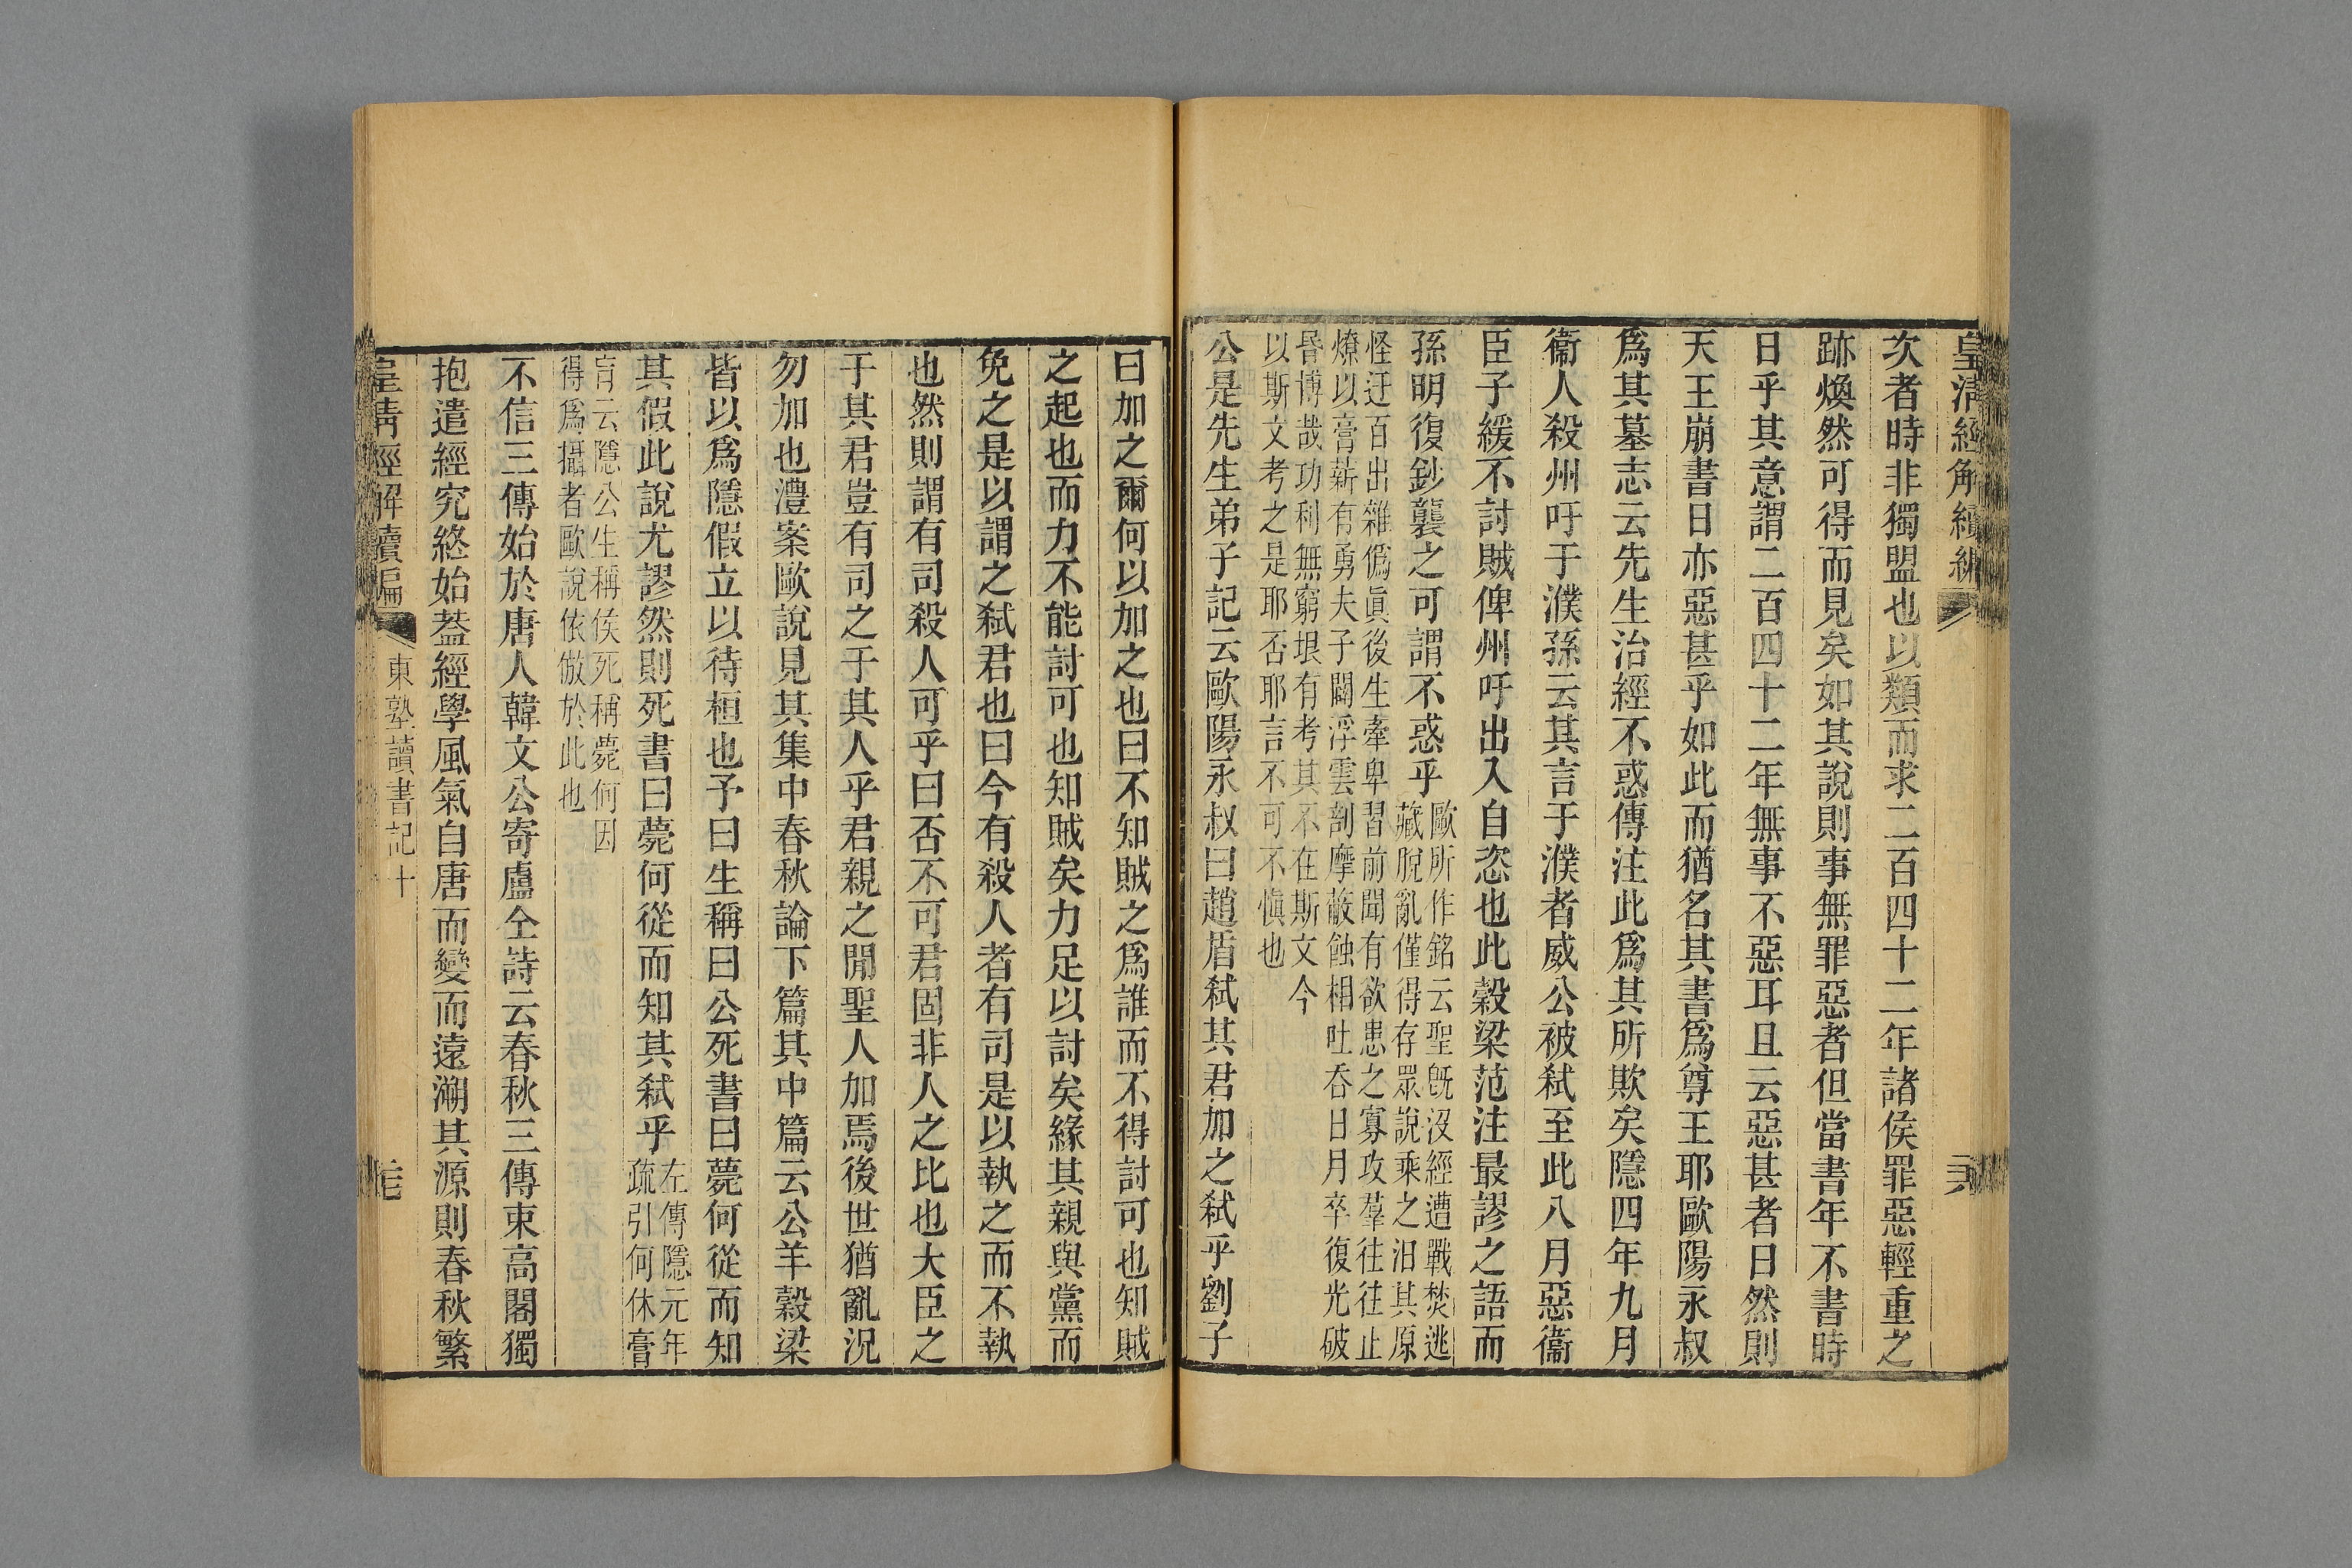 皇清經解續編
次者時非獨盟也以類而求二百四十二年諸侯罪惡輕重之
跡煥然可得而見矣如其說則事無罪惡者但當書年不書時
日乎其意謂二百四十二年無事不惡耳且云惡甚者日然則
天王崩書日亦惡甚乎如此而猶名其書爲尊王耶歐陽永叔
爲其墓志云先生治經不惑傳注此爲其所欺矣隱四年九月
衞人殺州吁于濮孫云其言于濮者威公被弑至此八月惡衞
臣子緩不討賊俾州吁出入自恣也此穀梁范注最謬之語而
孫明復鈔襲之可謂不惑乎
歐所作銘云聖旣沒經遭戰焚逃
藏脫亂僅得存眾說乘之汨其原
怪迂百出雜僞眞後生牽卑習前聞有欲患之寡攻羣往往止
燎以膏薪有勇夫子闢浮雲刮摩蔽蝕相吐吞日月卒復光破
昬博哉功利無窮垠有考其不在斯文今
以斯文考之是耶否耶言不可不愼也
公是先生弟子記云歐陽永叔曰趙盾弑其君加之弑乎劉子
曰加之爾何以加之也曰不知賊之爲誰而不得討可也知賊
之起也而力不能討可也知賊矣力足以討矣緣其親與黨而
免之是以謂之弑君也曰今有殺人者有司是以執之而不執
也然則謂有司殺人可乎曰否不可君固非人之比也大臣之
于其君豈有司之于其人乎君親之閒聖人加焉後世猶亂況
勿加也澧案歐說見其集中春秋論下篇其中篇云公羊穀梁
皆以爲隱假立以待桓也予曰生稱曰公死書曰薨何從而知
其假此說尤謬然則死書曰薨何從而知其弑乎
左傳隱元年
疏引何休膏
肓云隱公生稱侯死稱薨何因
得爲攝者歐說依倣於此也
不信三傳始於唐人韓文公寄盧仝詩云春秋三傳束高閣獨
抱遺經究終始葢經學風氣自唐而變而遠溯其源則春秋繁
皇淸經解續編
東塾讀書記十